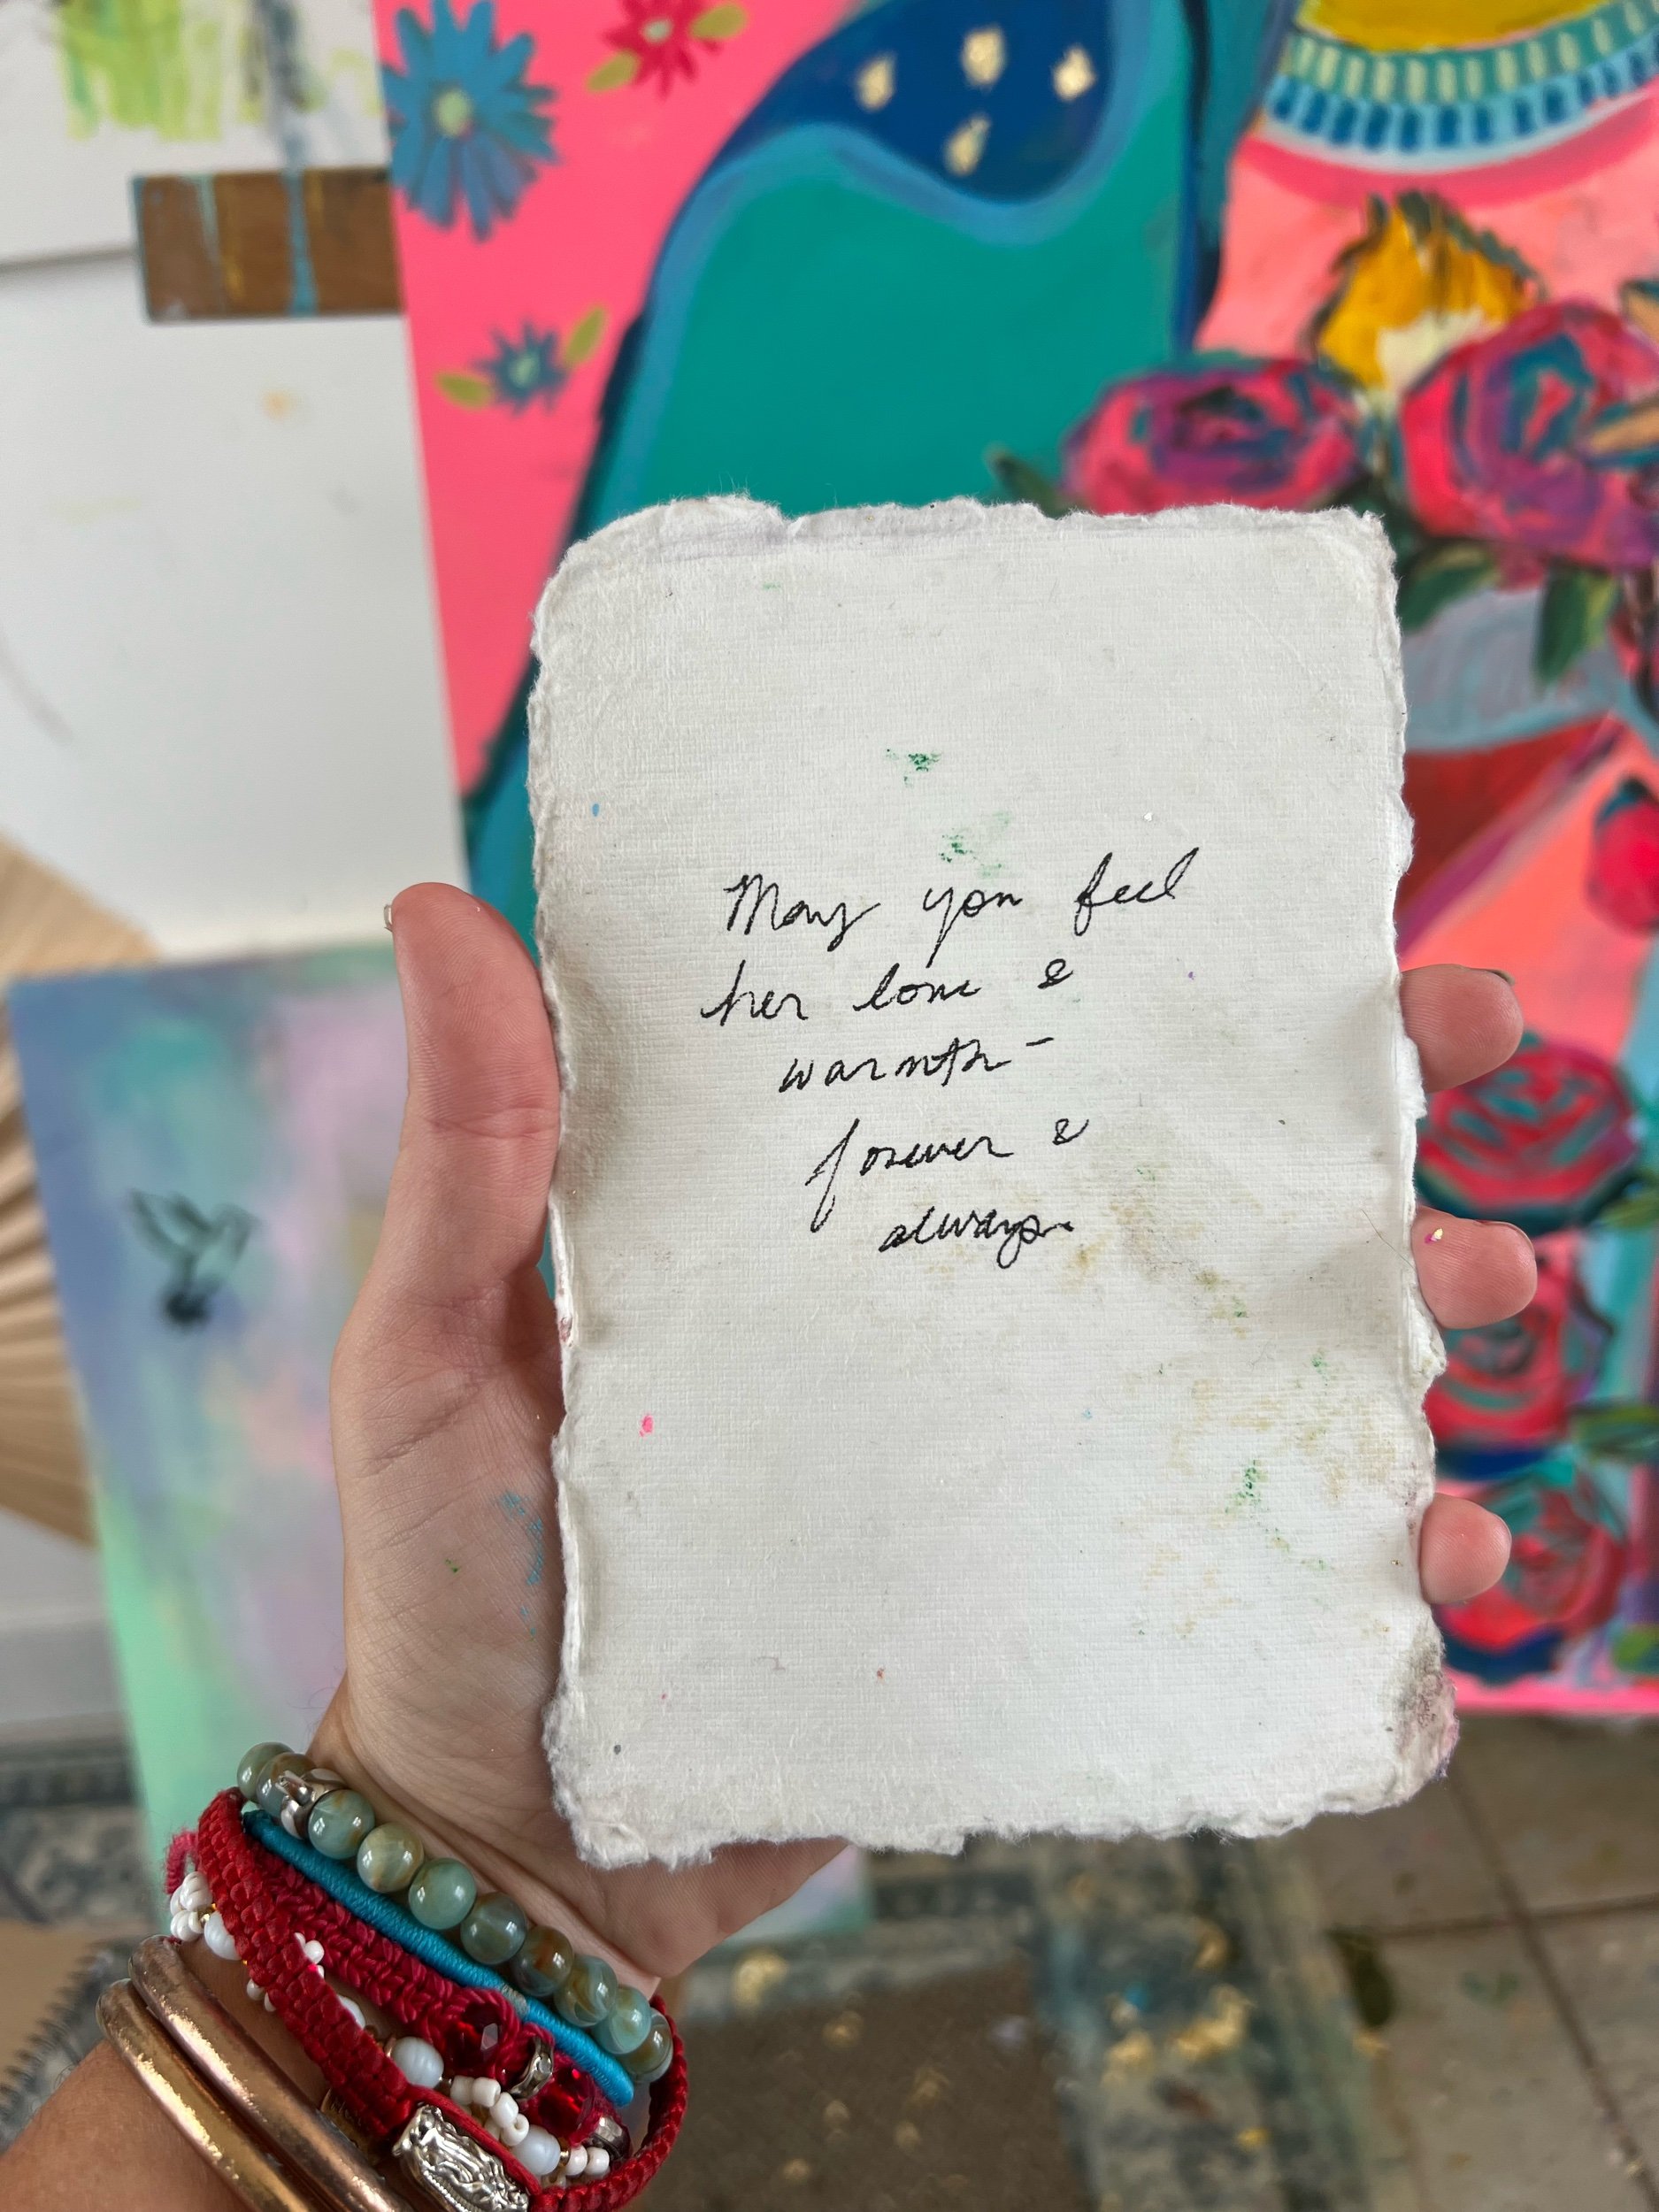 May you feel
her love &
warmth -
forever &
always.